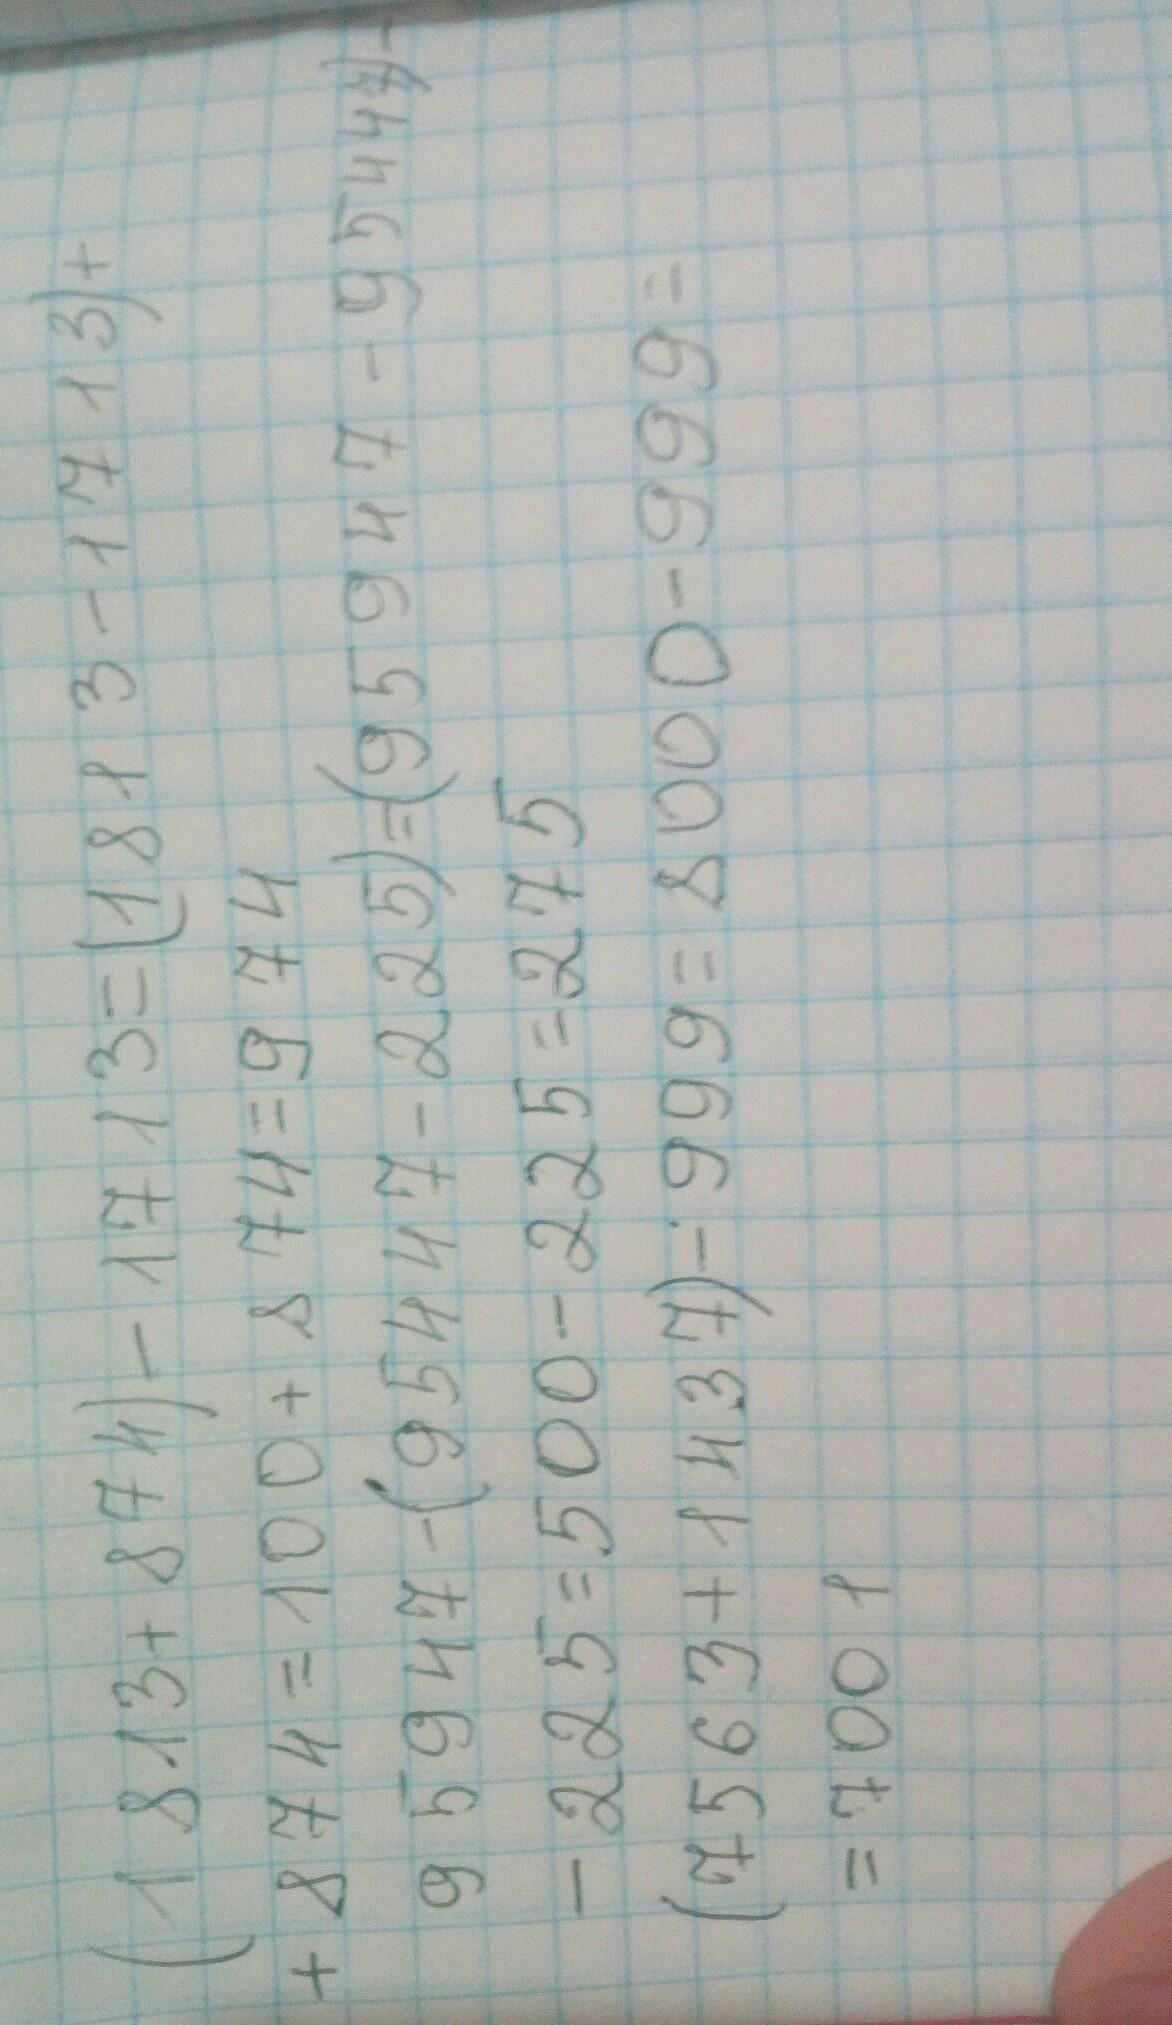 (1813+874)-1713=(1813-1713)+
+874=100+874=974
95947-(95447-225)=(95947-95447)-
-225=500-225=275
(7563+1437)-999=8000-999=
=7001